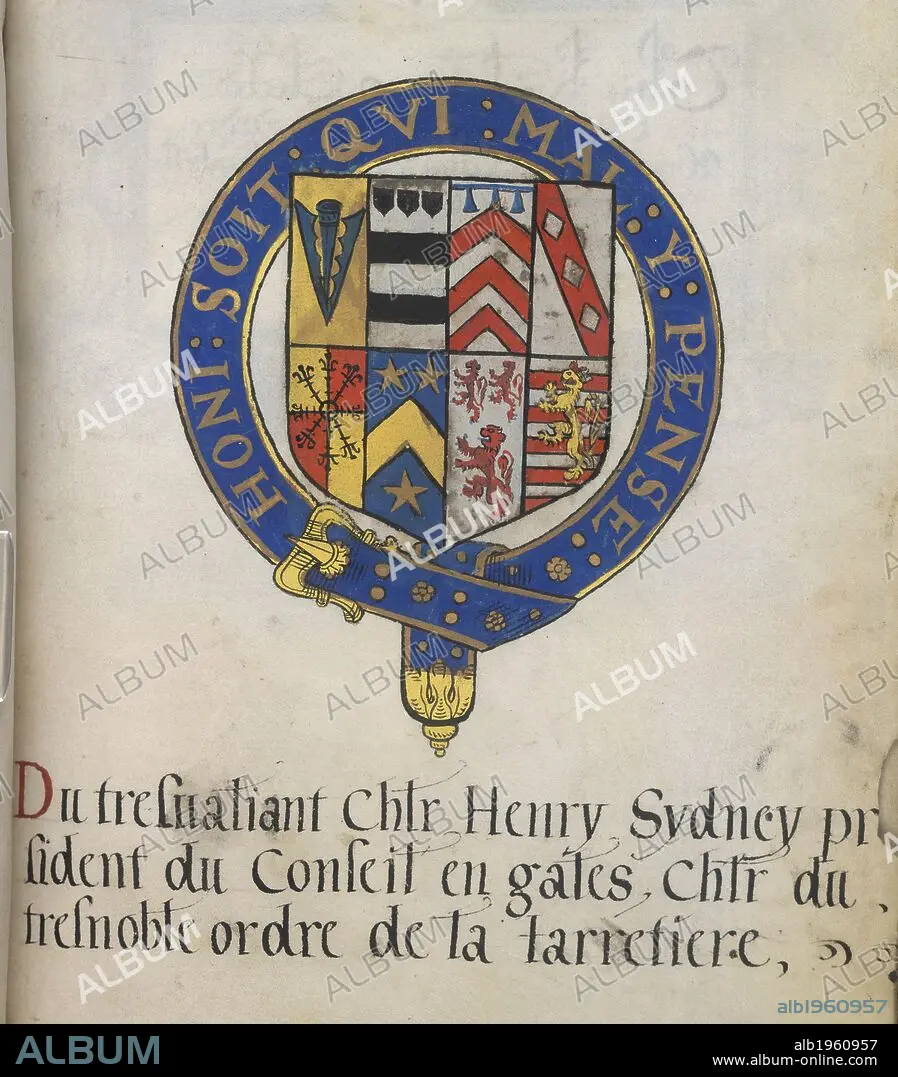 HONI : SOIT · QVI : MAL : Y : PENSE :
Du treſualiant Chlr Henry Sydney pr
ſident du Conſeil en gales, Chlr du ,
treſnoble ordre de la Jarretiere,
ALBUM
alb1960957
alb1960957
www.album-online.com